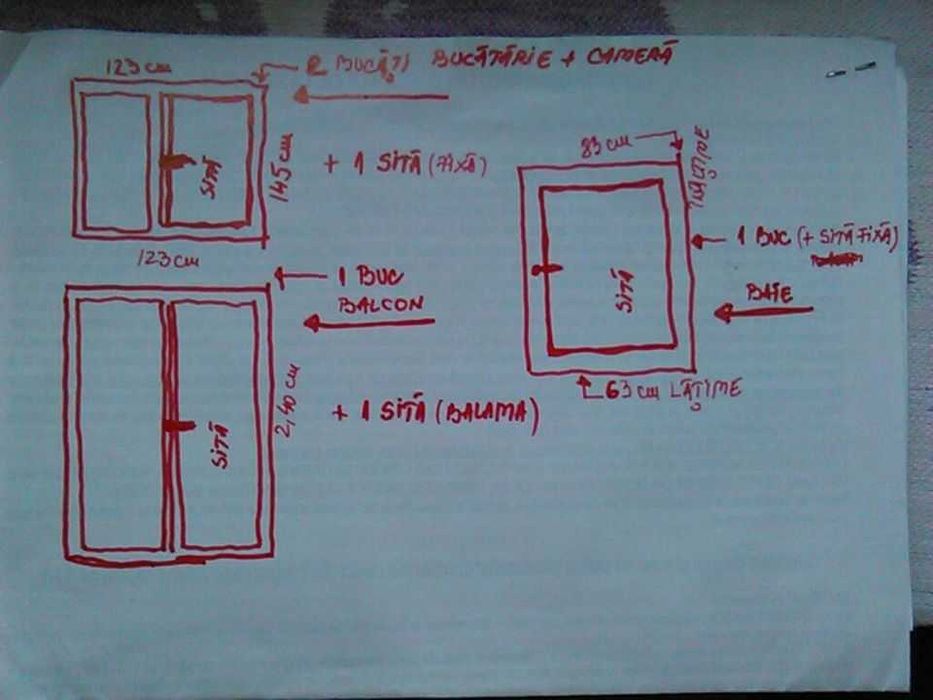 123 cm
2 BUCĂȚI BUCĂTĂRIE + CAMERĂ
SITĂ
145 cm
+ 1 SITĂ (FIXĂ)
123 cm
1 BUC
BALCON
SITĂ
2,40 cm
+ 1 SITĂ (BALAMA)
83 cm
ÎNĂLȚIME
1 BUC (+ SITĂ FIXĂ)
BAIE
SITĂ
63 cm LĂȚIME